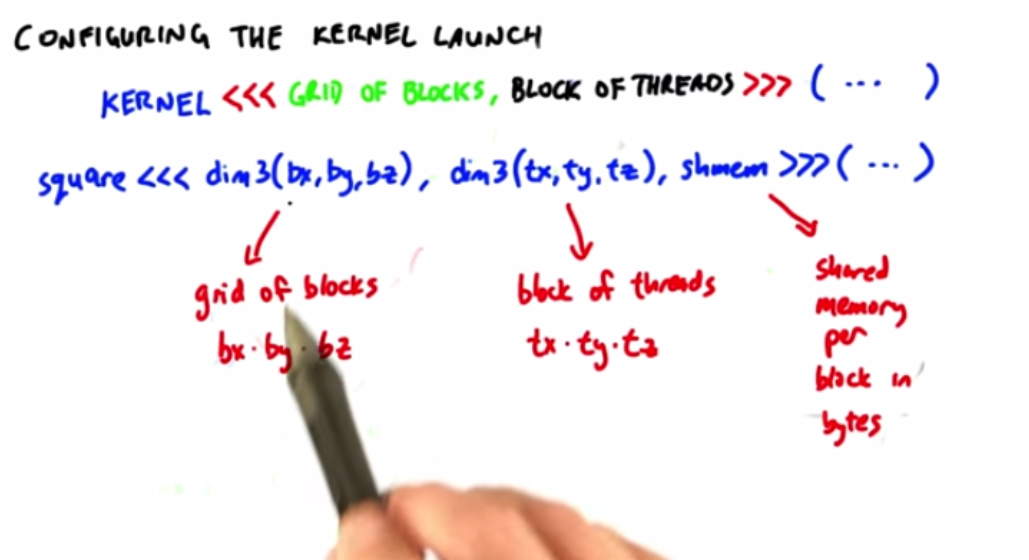 CONFIGURING THE KERNEL LAUNCH
KERNEL <<< GRID OF BLOCKS, BLOCK OF THREADS >>> ( ... )
square <<< dim3(bx,by,bz), dim3(tx,ty,tz), shmem >>>( ... )
grid of blocks
bx · by · bz
block of threads
tx · ty · tz
shared
memory
per
block in
bytes